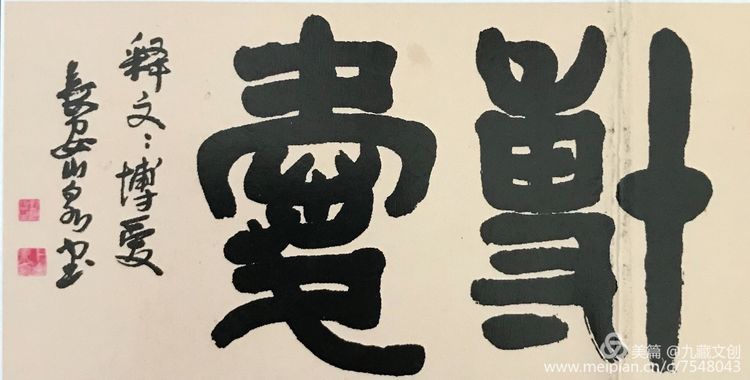 博愛
释文:博爱
长安山泉书
美篇 @九藏文创
www.meipian.cn/c/7548043